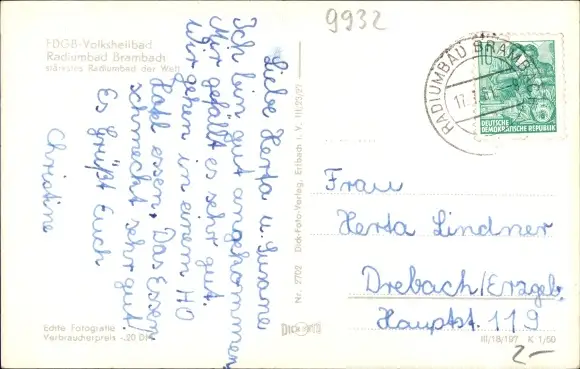 9932
FDGB-Volksheilbad
Radiumbad Brambach
stärkstes Radiumbad der Welt
Liebe Herta u. Susane
Ich bin gut angekommen
Mir gefällt es sehr gut.
Wir gehen in einem HO
Hotel essen. Das Essen
schmeckt sehr gut!
Es grüßt Euch
Christine
Nr. 2702 Dick-Foto-Verlag, Erlbach i. V.
RADIUMBAD BRAMBACH
DEUTSCHE
DEMOKRATISCHE REPUBLIK
Frau
Herta Lindner
Drebach/Erzgeb.
Hauptst. 119
Echte Fotografie
Verbraucherpreis -.20 DM
DICK
III/18/197 K 1/60
2-